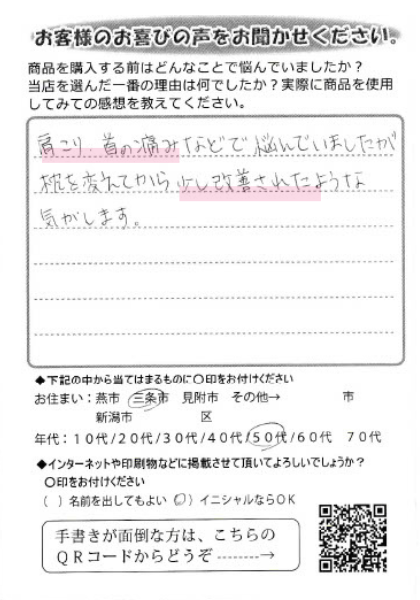 お客様のお喜びの声をお聞かせください。
商品を購入する前はどんなことで悩んでいましたか?
当店を選んだ一番の理由は何でしたか?実際に商品を使用
してみての感想を教えてください。
肩こり・首の痛みなどで悩んでいましたが
枕を変えてから少し改善されたような
気がします。
◆下記の中から当てはまるものに〇印をお付けください
お住まい:燕市 三条市 見附市 その他→ 市
新潟市 区
年代:10代/20代/30代/40代/50代/60代 70代
◆インターネットや印刷物などに掲載させて頂いてよろしいでしょうか?
〇印をお付けください
( )名前を出してもよい (○)イニシャルならOK
手書きが面倒な方は、こちらの
QRコードからどうぞ--------→